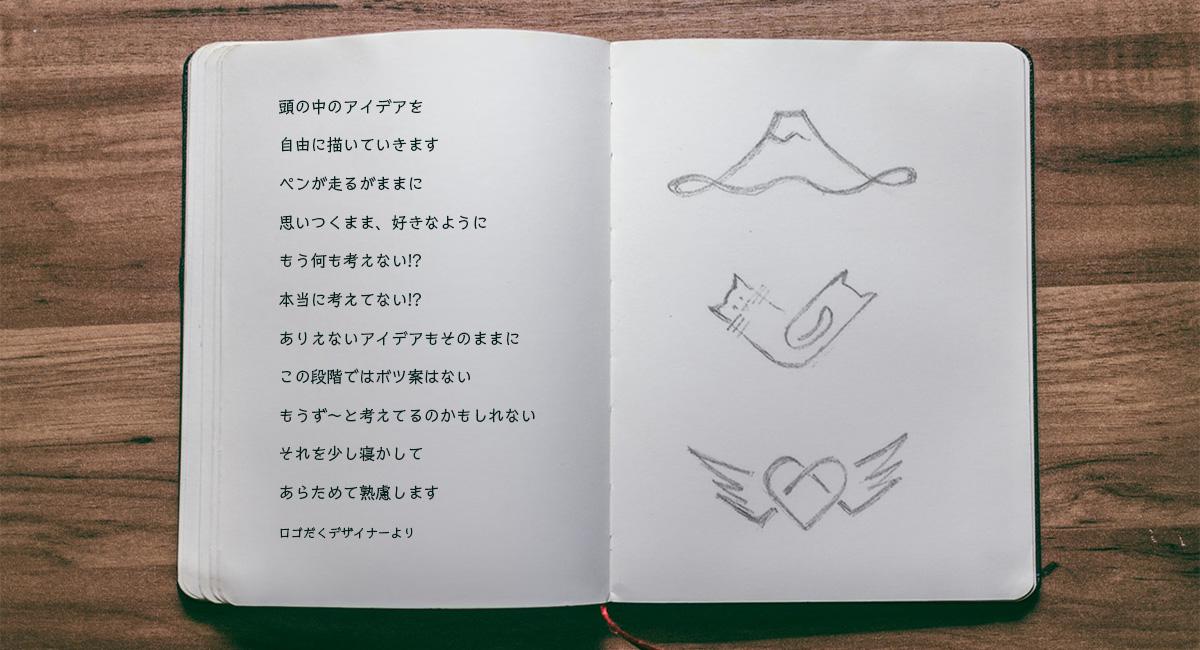 頭の中のアイデアを
自由に描いていきます
ペンが走るがままに
思いつくまま、好きなように
もう何も考えない!?
本当に考えてない!?
ありえないアイデアもそのままに
この段階ではボツ案はない
もうず〜と考えてるのかもしれない
それを少し寝かして
あらためて熟慮します
ロゴだくデザイナーより